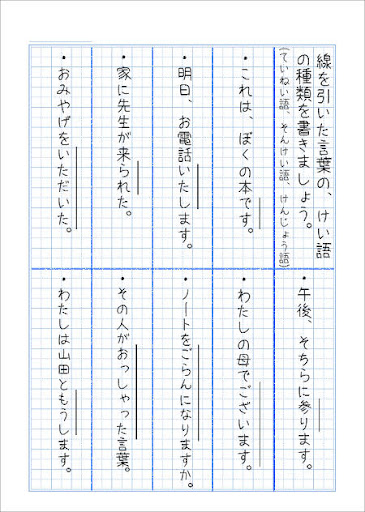 線を引いた言葉の、けい語
の種類を書きましょう。
(ていねい語、そんけい語、けんじょう語)
・これは、ぼくの本です。
・明日、お電話いたします。
・家に先生が来られた。
・おみやげをいただいた。
・午後、そちらに参ります。
・わたしの母でございます。
・ノートをごらんになりますか。
・その人がおっしゃった言葉。
・わたしは山田ともうします。